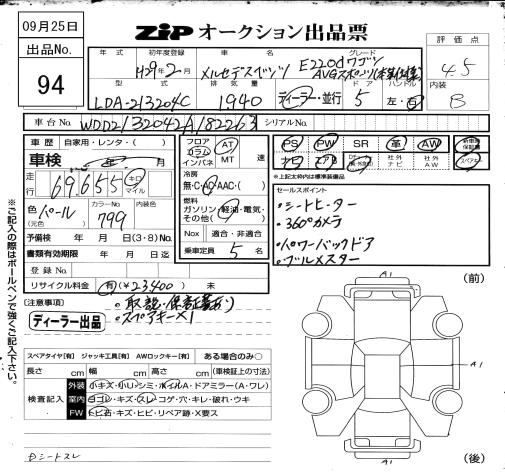 09月25日
ZiP オークション出品票
出品No.
94
年式
初年度登録
H29年2月
車名
メルセデスベンツ
グレード
E220dワゴン
AVGスポーツ(本革仕様)
評価点
4.5
型式
LDA-213204C
排気量
1940
ディーラー・並行
ドア
5
ハンドル
左・右
内装
B
車台No. WDD2132042A182263
シリアルNo.
車歴 自家用・レンタ・( )
車検 年 月
走行 69,655 キロ マイル
色 パール
(元色)
カラーNo
799
内装色
予備検 年 月 日(3・8)No.
書類有効期限 年 月 日迄
登録No.
リサイクル料金 有(¥23,400) 未
フロア
コラム
インパネ
AT
MT
速
冷房
無・C・AC・AAC・( )
燃料
ガソリン・軽油・電気・
その他( )
Nox 適合・非適合
乗車定員 5 名
PS PW SR 革 AW
エアB
社外ナビ
社外AW
新車時保証書
スペアキー
※上記太枠内は標準装備品
セールスポイント
・シートヒーター
・360°カメラ
・パワーバックドア
・ブルメスター
(注意事項)
・取説・保証書あり
・スペアキー×1
ディーラー出品
スペアタイヤ[有] ジャッキ工具[有] AWロックキー[有] ある場合のみ○
長さ cm 幅 cm 高さ cm (車検証上の寸法)
検査記入
外装 小キズ・小凹・シミ・ホイルA・ドアミラー(A・ワレ)
室内 ヨゴレ・キズ・スレ・コゲ・穴・キレ・破れ・ウキ
FW トビ石・キズ・ヒビ・リペア跡・X要ス
Dシートスレ
A1
(前)
A1
A1
(後)
※ご記入の際はボールペンで強くご記入下さい。